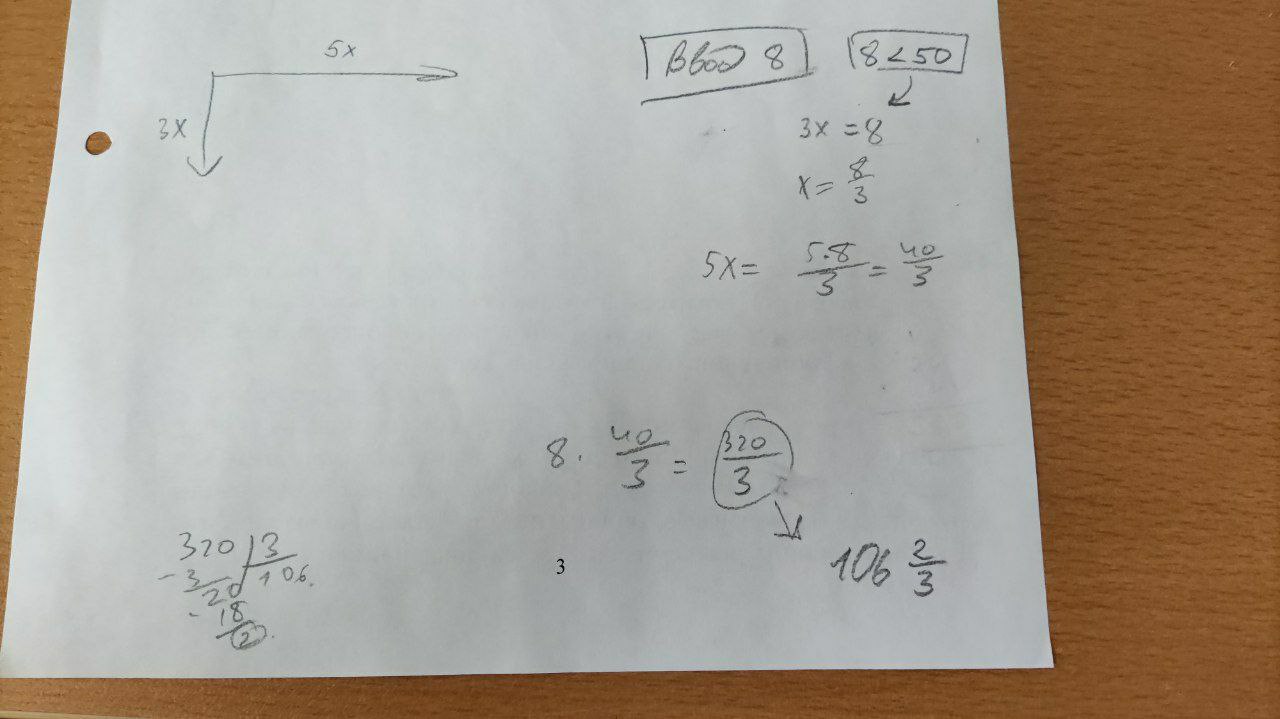 5x
3x
Ввод 8
8 < 50
3x = 8
x = 8/3
5x = 5·8/3 = 40/3
8 · 40/3 = 320/3
106 2/3
320 | 3
- 3 | 106.
20
- 18
2
3